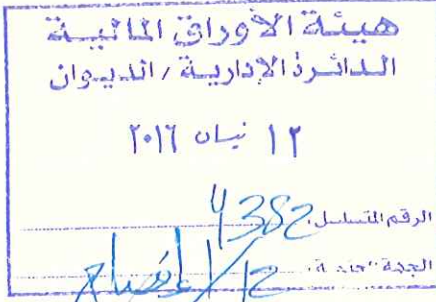 هيئة الأوراق المالية
الدائرة الإدارية / الديوان
١٢ نيسان ٢٠١٦
الرقم المتسلسل
الجهة المختصة
الإفصاح